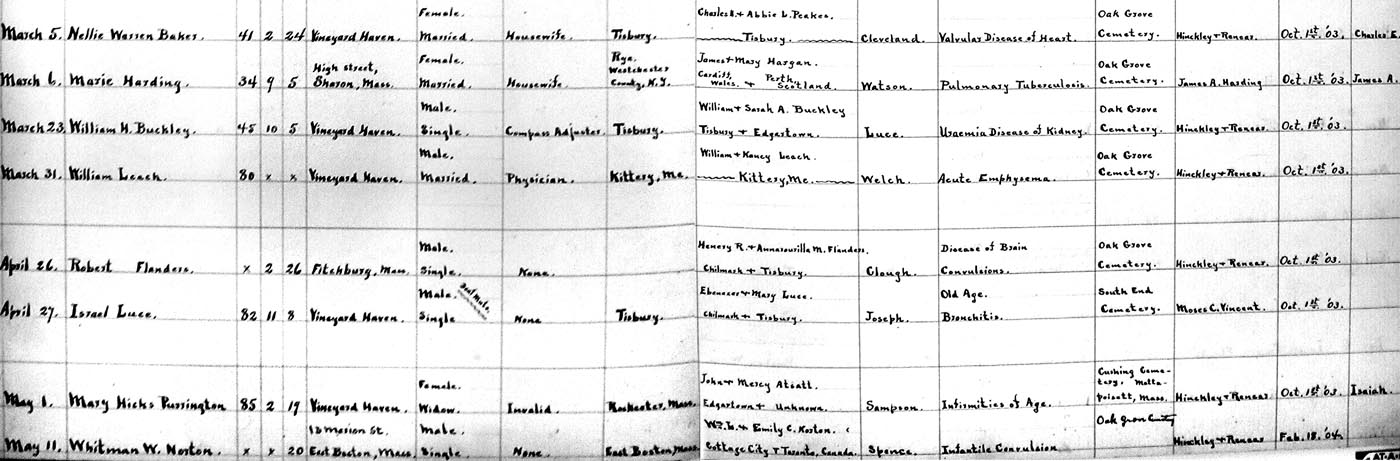 Female. Charles H. + Abbie L. Peakes. Oak Grove
March 5. Nellie Warren Baker. 41 2 24 Vineyard Haven. Married. Housewife. Tisbury. Tisbury. Cleveland. Valvular Disease of Heart. Cemetery. Hinckley + Renear. Oct. 1st '03. Charles E.
High street, Female. Rye, Westchester James + Mary Hargan. Oak Grove
March 6. Marie Harding. 34 9 5 Sharon, Mass. Married. Housewife. County, N.Y. Cardiff, Wales. + Perth, Scotland. Watson. Pulmonary Tuberculosis. Cemetery. James A. Harding Oct. 1st '03. James A.
Male. William + Sarah A. Buckley Oak Grove
March 23. William H. Buckley. 45 10 5 Vineyard Haven. Single. Compass Adjuster. Tisbury. Tisbury + Edgartown. Luce. Uraemia Disease of Kidney. Cemetery. Hinckley + Renear. Oct. 1st '03.
Male. William + Nancy Leach. Oak Grove
March 31. William Leach. 80 x x Vineyard Haven. Married. Physician. Kittery, Me. Kittery, Me. Welch. Acute Emphysema. Cemetery. Hinckley + Renear. Oct. 1st '03.
Male. Henery R. + Flanders. Disease of Brain Oak Grove
April 26. Robert Flanders. x 2 26 Fitchburg, Mass. Single. None. Chilmark + Tisbury. Clough. Convulsions. Cemetery. Hinckley + Renear. Oct. 1st '03.
Male. Deaf Mute. Ebenezer + Mary Luce. Old Age. South End
April 27. Israel Luce. 82 11 8 Vineyard Haven. Single None Tisbury. Chilmark + Tisbury. Joseph. Bronchitis. Cemetery. Moses C. Vincent. Oct. 1st '03.
Female. John + Mercy Atsatt. Cushing Ceme-
tery, Matta-
May 1. Mary Hicks Purrington 85 2 19 Vineyard Haven. Widow. Invalid. Rochester, Mass. Edgartown + Unknown. Sampson. Infirmities of Age. poisett, Mass. Hinckley + Renear. Oct. 1st '03. Isaiah
Marion St. Male. Wm. L. + Emily C. Norton. Oak Grove
May 11. Whitman W. Norton. x x 20 East Boston, Mass. Single. None. East Boston, Mass. Cottage City + Toronto, Canada. Spence. Infantile Convulsion Hinckley + Renear Feb. 18. '04.